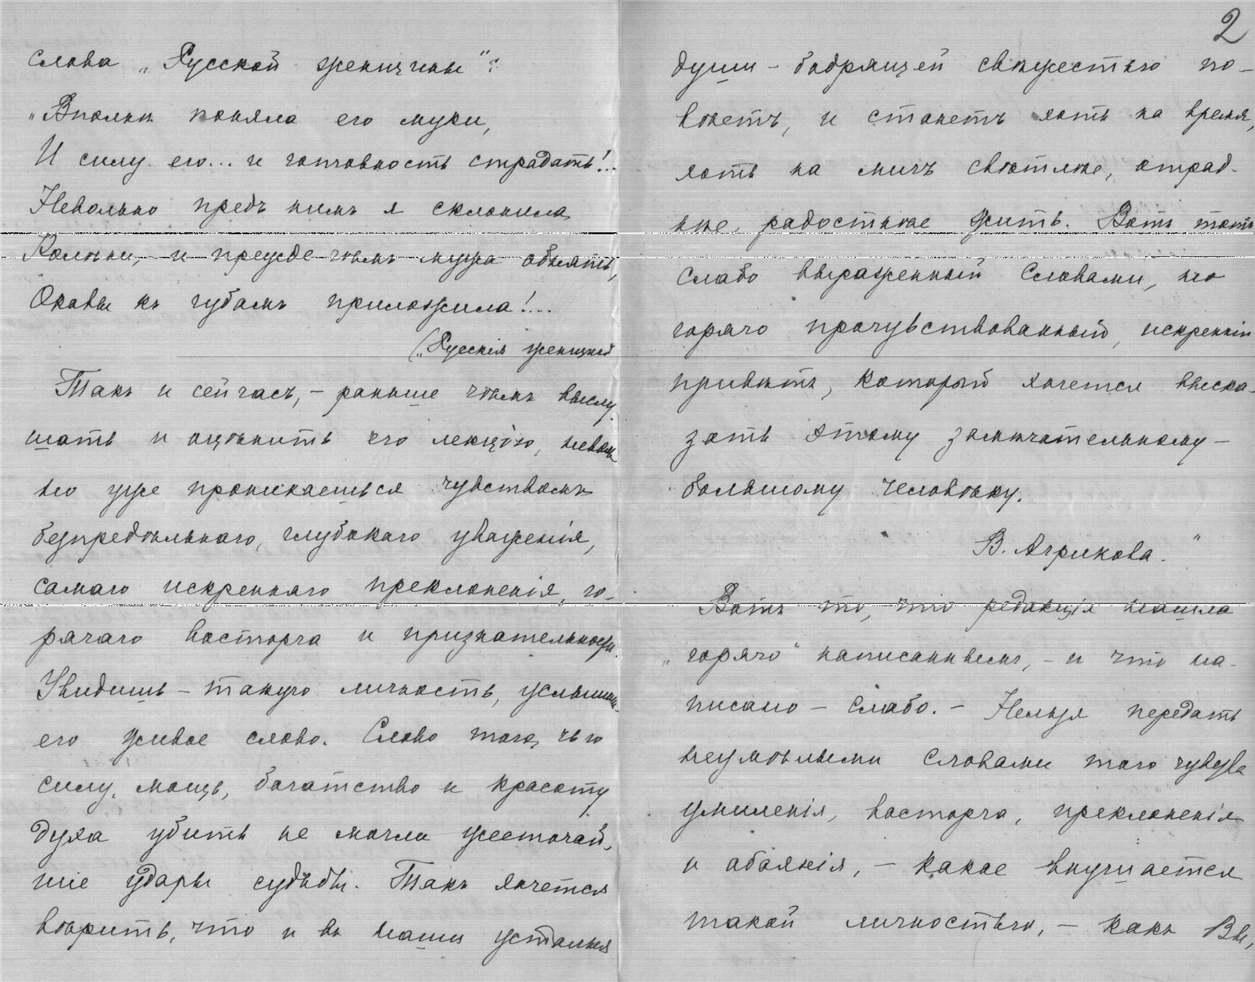 слова „Русской женщины":
„Вполнѣ поняла его муки,
И силу его... и готовность страдать!..
Невольно предъ нимъ я склонила
Колѣни, и прежде чѣмъ мужа обнять,
Оковы къ губамъ приложила!...
(„Русскія женщины
Такъ и сейчасъ, – раньше чѣмъ выслу
шать и оцѣнить его лекцію, неволь
но уже проникаешься чувствомъ
безпредѣльнаго, глубокаго уваженія,
самаго искренняго преклоненія, го-
рячаго восторга и признательности.
Увидишь – такую личность, услышишь
его живое слово. Слово того, чью
силу, мощь, богатство и красоту
духа убить не могли жесточай-
шіе удары судьбы. Такъ хочется
вѣрить, что и въ наши усталыя
2
души – бодрящей свѣжестью по-
вѣетъ, и станетъ хоть на время,
хоть на мигъ свѣтлѣе, отрад-
нѣе, радостнѣе жить. Вотъ тотъ
слабо выраженный словами, но
горячо прочувствованный, искренній
привѣтъ, который хочется выска-
зать этому замѣчательному –
большому человѣку.
В. Агрикова."
Вотъ то, что редакція нашла
„горячо" написаннымъ, – и что на-
писано – слабо. – Нельзя передать
неумѣлыми словами того чувства
умиленія, восторга, преклоненія
и обаянія, – какое внушается
такой личностью, – какъ Вы,